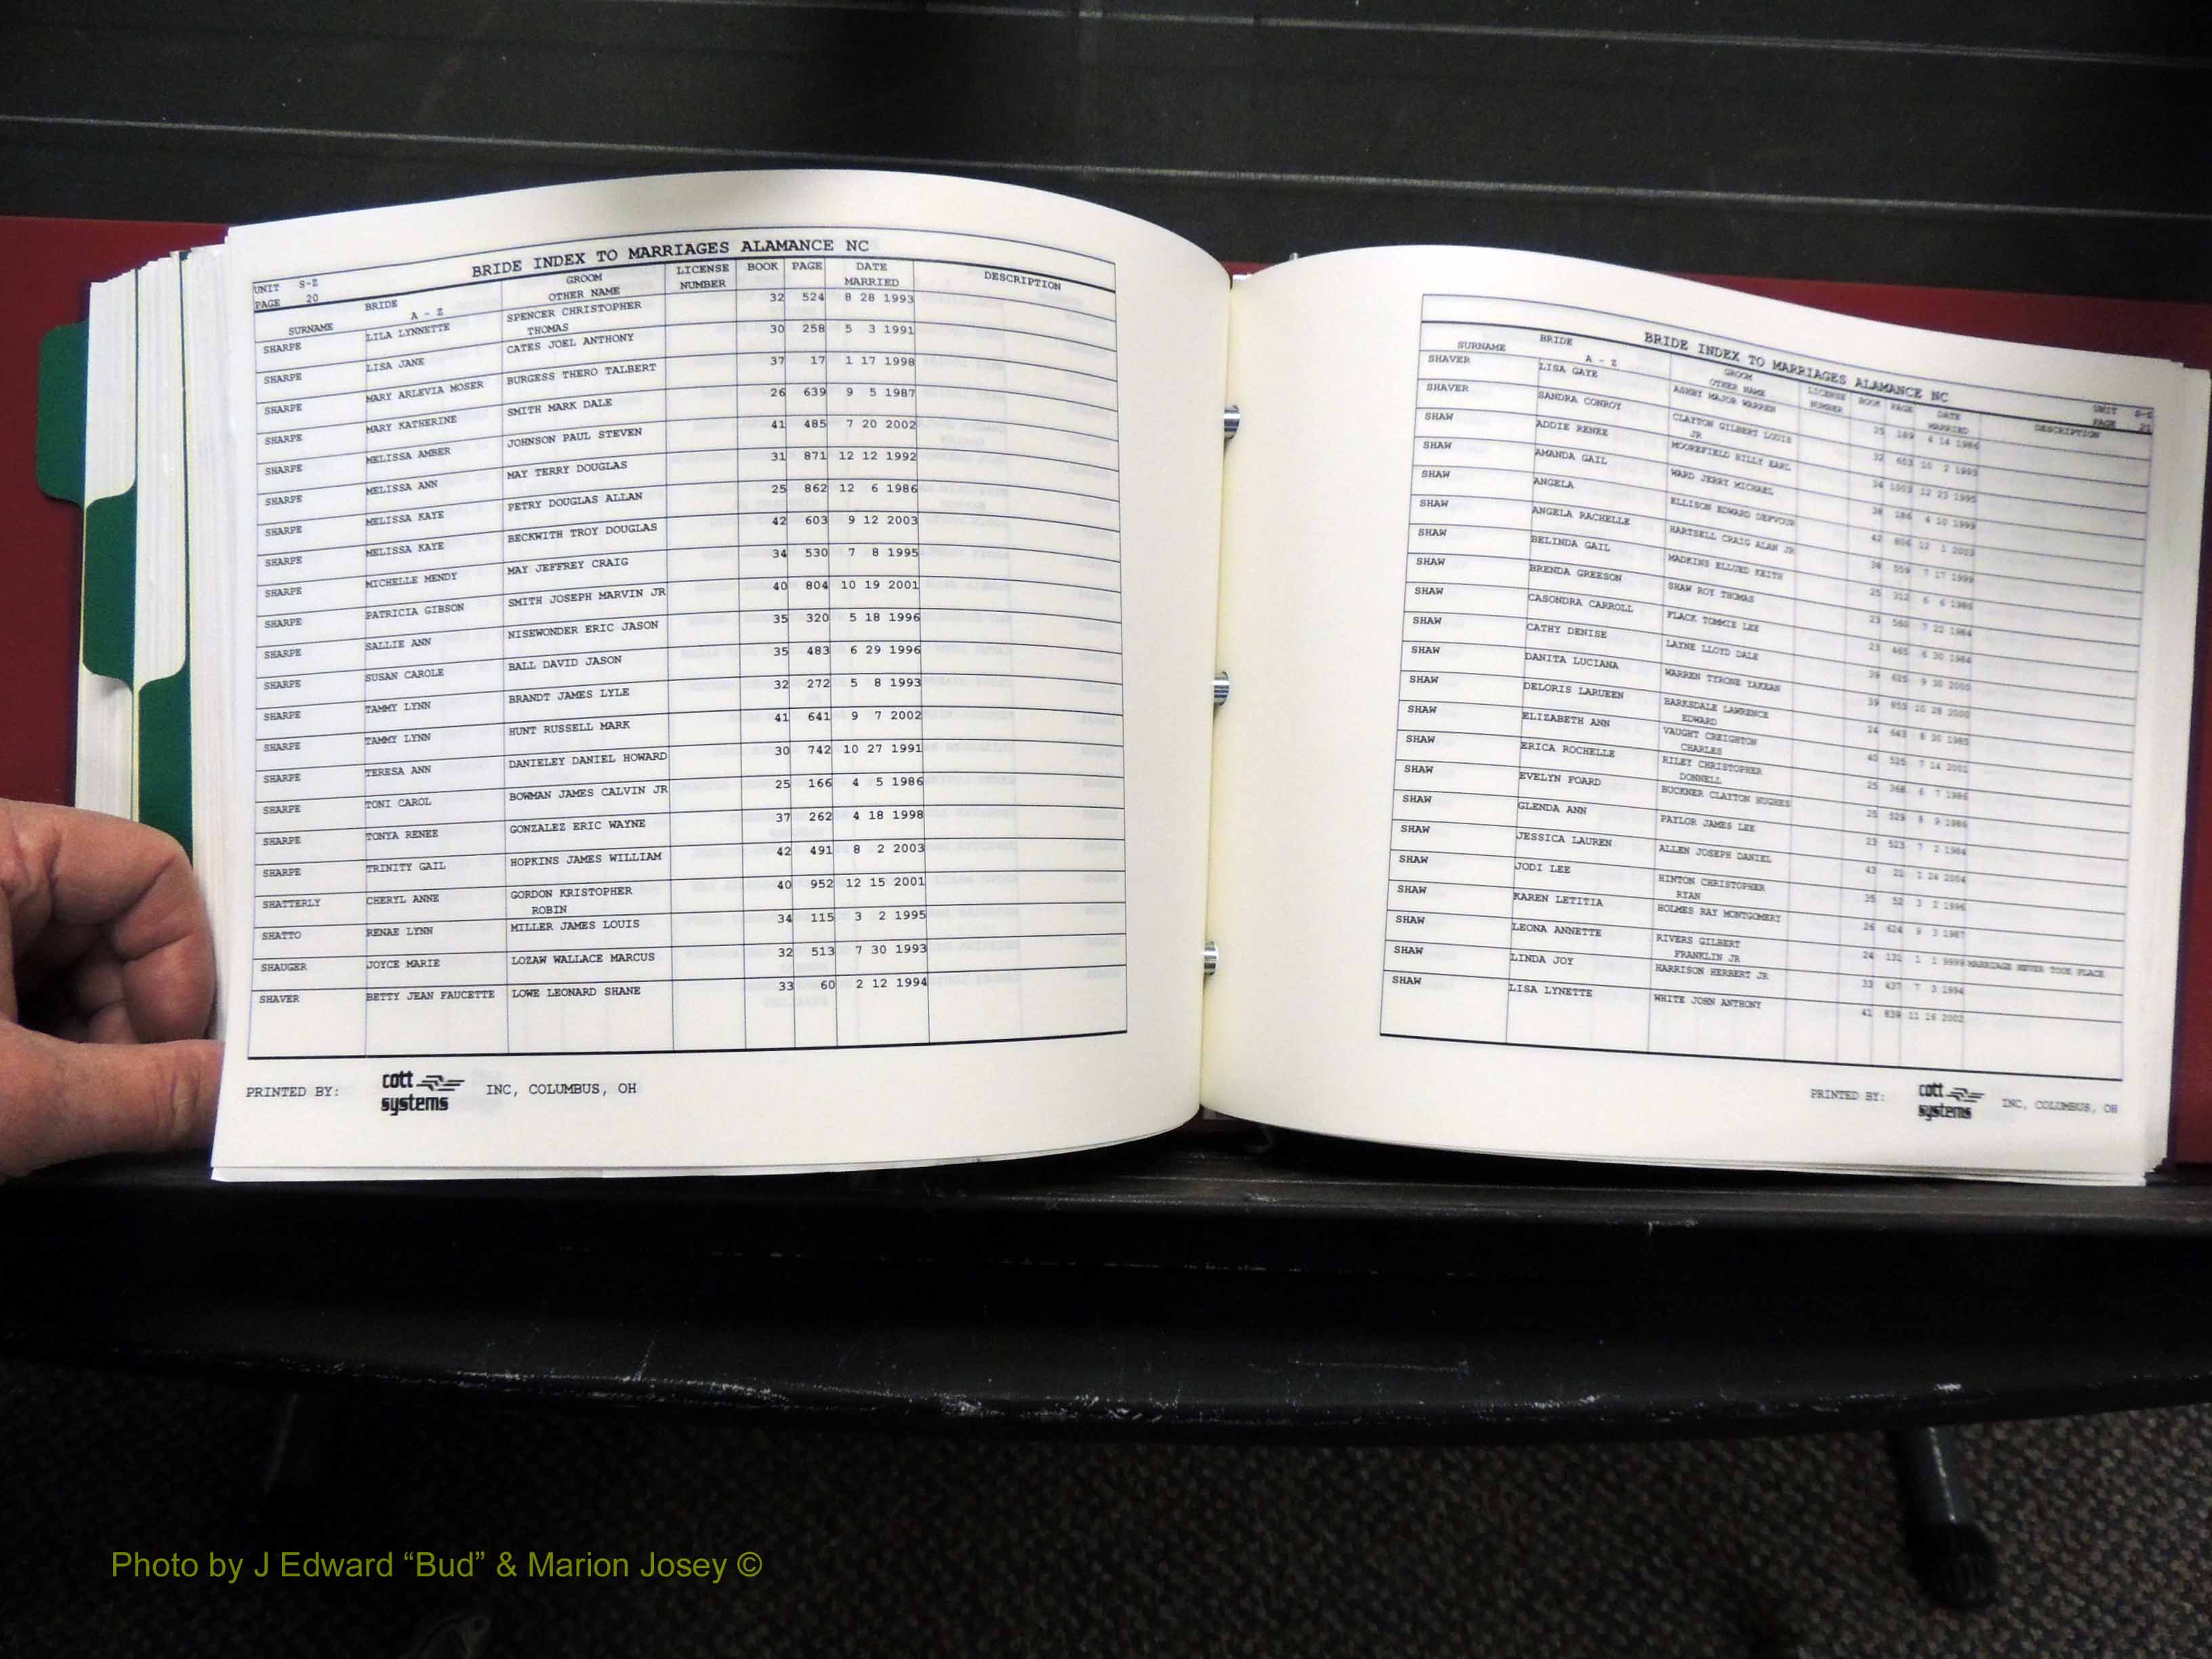 BRIDE INDEX TO MARRIAGES ALAMANCE NC
UNIT S-Z
PAGE 20
SURNAME BRIDE A - Z GROOM OTHER NAME LICENSE NUMBER BOOK PAGE DATE MARRIED DESCRIPTION
SHARPE LILA LYNNETTE SPENCER CHRISTOPHER 32 524 8 28 1993
THOMAS
SHARPE LISA JANE CATES JOEL ANTHONY 30 258 5 3 1991
SHARPE MARY ARLEVIA MOSER BURGESS THERO TALBERT 37 17 1 17 1998
SHARPE MARY KATHERINE SMITH MARK DALE 26 639 9 5 1987
SHARPE MELISSA AMBER JOHNSON PAUL STEVEN 41 485 7 20 2002
SHARPE MELISSA ANN MAY TERRY DOUGLAS 31 871 12 12 1992
SHARPE MELISSA KAYE PETRY DOUGLAS ALLAN 25 862 12 6 1986
SHARPE MELISSA KAYE BECKWITH TROY DOUGLAS 42 603 9 12 2003
SHARPE MICHELLE MENDY MAY JEFFREY CRAIG 34 530 7 8 1995
SHARPE PATRICIA GIBSON SMITH JOSEPH MARVIN JR 40 804 10 19 2001
SHARPE SALLIE ANN NISEWONDER ERIC JASON 35 320 5 18 1996
SHARPE SUSAN CAROLE BALL DAVID JASON 35 483 6 29 1996
SHARPE TAMMY LYNN BRANDT JAMES LYLE 32 272 5 8 1993
SHARPE TAMMY LYNN HUNT RUSSELL MARK 41 641 9 7 2002
SHARPE TERESA ANN DANIELEY DANIEL HOWARD 30 742 10 27 1991
SHARPE TONI CAROL BOWMAN JAMES CALVIN JR 25 166 4 5 1986
SHARPE TONYA RENEE GONZALEZ ERIC WAYNE 37 262 4 18 1998
SHARPE TRINITY GAIL HOPKINS JAMES WILLIAM 42 491 8 2 2003
SHATTERLY CHERYL ANNE GORDON KRISTOPHER 40 952 12 15 2001
ROBIN
SHATTO RENAE LYNN MILLER JAMES LOUIS 34 115 3 2 1995
SHAUGER JOYCE MARIE LOZAW WALLACE MARCUS 32 513 7 30 1993
SHAVER BETTY JEAN FAUCETTE LOWE LEONARD SHANE 33 60 2 12 1994
PRINTED BY: cott systems INC, COLUMBUS, OH
BRIDE INDEX TO MARRIAGES ALAMANCE NC
UNIT S-Z
PAGE 21
SURNAME BRIDE A - Z GROOM OTHER NAME LICENSE NUMBER BOOK PAGE DATE MARRIED DESCRIPTION
SHAVER LISA GAYE ASHBY MAJOR WARREN 25 189 4 14 1986
SHAVER SANDRA CONROY CLAYTON GILBERT LOUIS 32 603 10 2 1993
JR
SHAW ADDIE RENEE MOOREFIELD BILLY EARL 34 1003 12 23 1995
SHAW AMANDA GAIL WARD JERRY MICHAEL 38 186 4 10 1999
SHAW ANGELA ELLISON EDWARD 42 806 12 1 2003
SHAW ANGELA RACHELLE HARTSELL CRAIG ALAN JR 38 559 7 17 1999
SHAW BELINDA GAIL MADKINS KEITH 25 312 6 6 1986
SHAW BRENDA GREESON SHAW ROY THOMAS 23 560 7 22 1984
SHAW CASONDRA CARROLL FLACK TOMMIE LEE 23 465 6 30 1984
SHAW CATHY DENISE LAYNE LLOYD DALE 39 625 9 30 2000
SHAW DANITA LUCIANA WARREN TYRONE 39 853 10 28 2000
SHAW DELORIS LARUEEN BARKSDALE LAWRENCE 24 643 8 30 1985
EDWARD
SHAW ELIZABETH ANN VAUGHT CREIGHTON 40 525 7 14 2001
CHARLES
SHAW ERICA ROCHELLE RILEY CHRISTOPHER 25 368 6 7 1986
DONNELL
SHAW EVELYN FOARD BUCKNER CLAYTON HUGHES 25 529 8 9 1986
SHAW GLENDA ANN PAYLOR JAMES LEE 23 523 7 2 1984
SHAW JESSICA LAUREN ALLEN JOSEPH DANIEL 43 21 1 24 2004
SHAW JODI LEE HINTON CHRISTOPHER 35 52 3 2 1996
RYAN
SHAW KAREN LETITIA HOLMES RAY MONTGOMERY 26 624 9 3 1987
SHAW LEONA ANNETTE RIVERS GILBERT 24 131 1 1 9999 MARRIAGE NEVER TOOK PLACE
FRANKLIN JR
SHAW LINDA JOY HARRISON HERBERT JR 33 437 7 3 1994
SHAW LISA LYNETTE WHITE JOHN ANTHONY 41 839 11 16 2002
PRINTED BY: cott systems INC, COLUMBUS, OH
Photo by J Edward “Bud” & Marion Josey ©